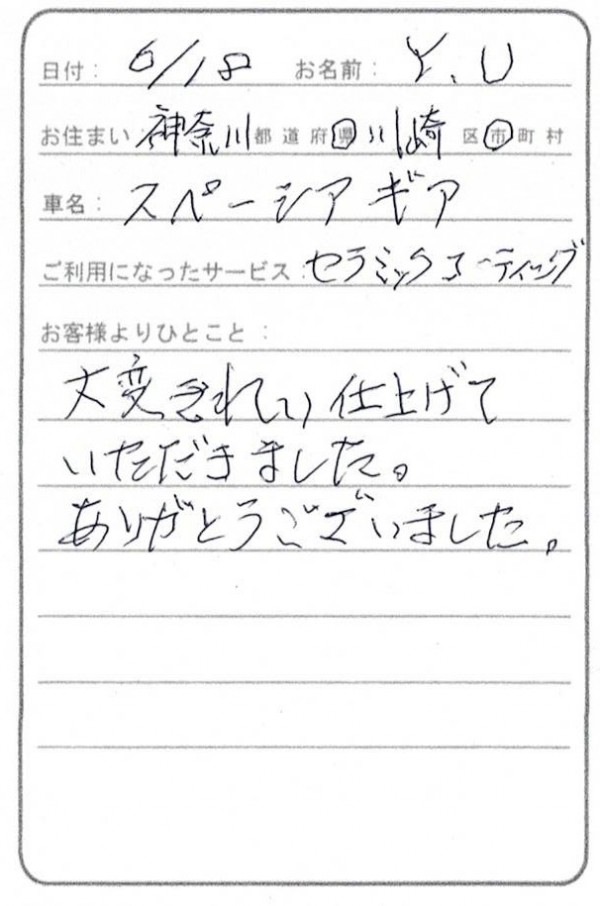 日付： 6/18 お名前： Y.U
お住まい：神奈川 都道府県 川崎 区市町村
車名： スペーシア ギア
ご利用になったサービス：セラミックコーティング
お客様よりひとこと：
大変きれい仕上げて
いただきました。
ありがとうございました。